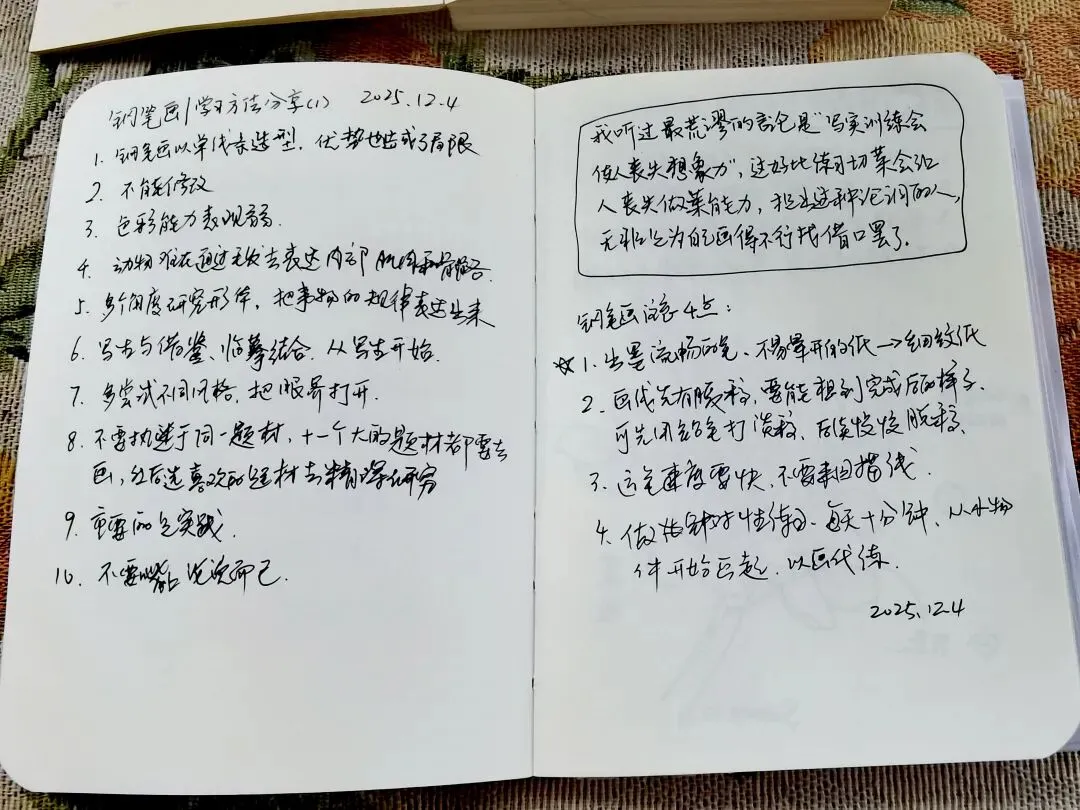 钢笔画|学习方法分享(1) 2025.12.4
1. 钢笔画以单线条造型，优势也造成了局限
2. 不能修改
3. 色彩能力表现弱.
4. 动物难在通过毛发去表达内部肌肉和骨骼.
5. 多个角度研究形体，把事物的规律表达出来
6. 写生与借鉴、临摹结合. 从写生开始.
7. 多尝试不同风格，把眼界打开.
8. 不要执迷于同一题材，十一个大的题材都要去
画，然后选喜欢的题材去精深研究
9. 重要的是实践.
10. 不要嘴上说说而已.
我听过最荒谬的言论是“写实训练会
使人丧失想象力”，这好比练习切菜会让
人丧失做菜能力，提出这种论调的人，
无非是为自己画得不行找借口罢了.
钢笔画 4点：
☆1. 出墨流畅的笔、不易晕开的纸→细纹纸
2. 画线先有腹稿，要能想到完成后的样子.
可先用铅笔打浅稿、后续慢慢脱稿.
3. 运笔速度要快，不要来回描线.
4. 做针对性练习、每天十分钟、从小物
件开始画起、以画代练.
2025.12.4